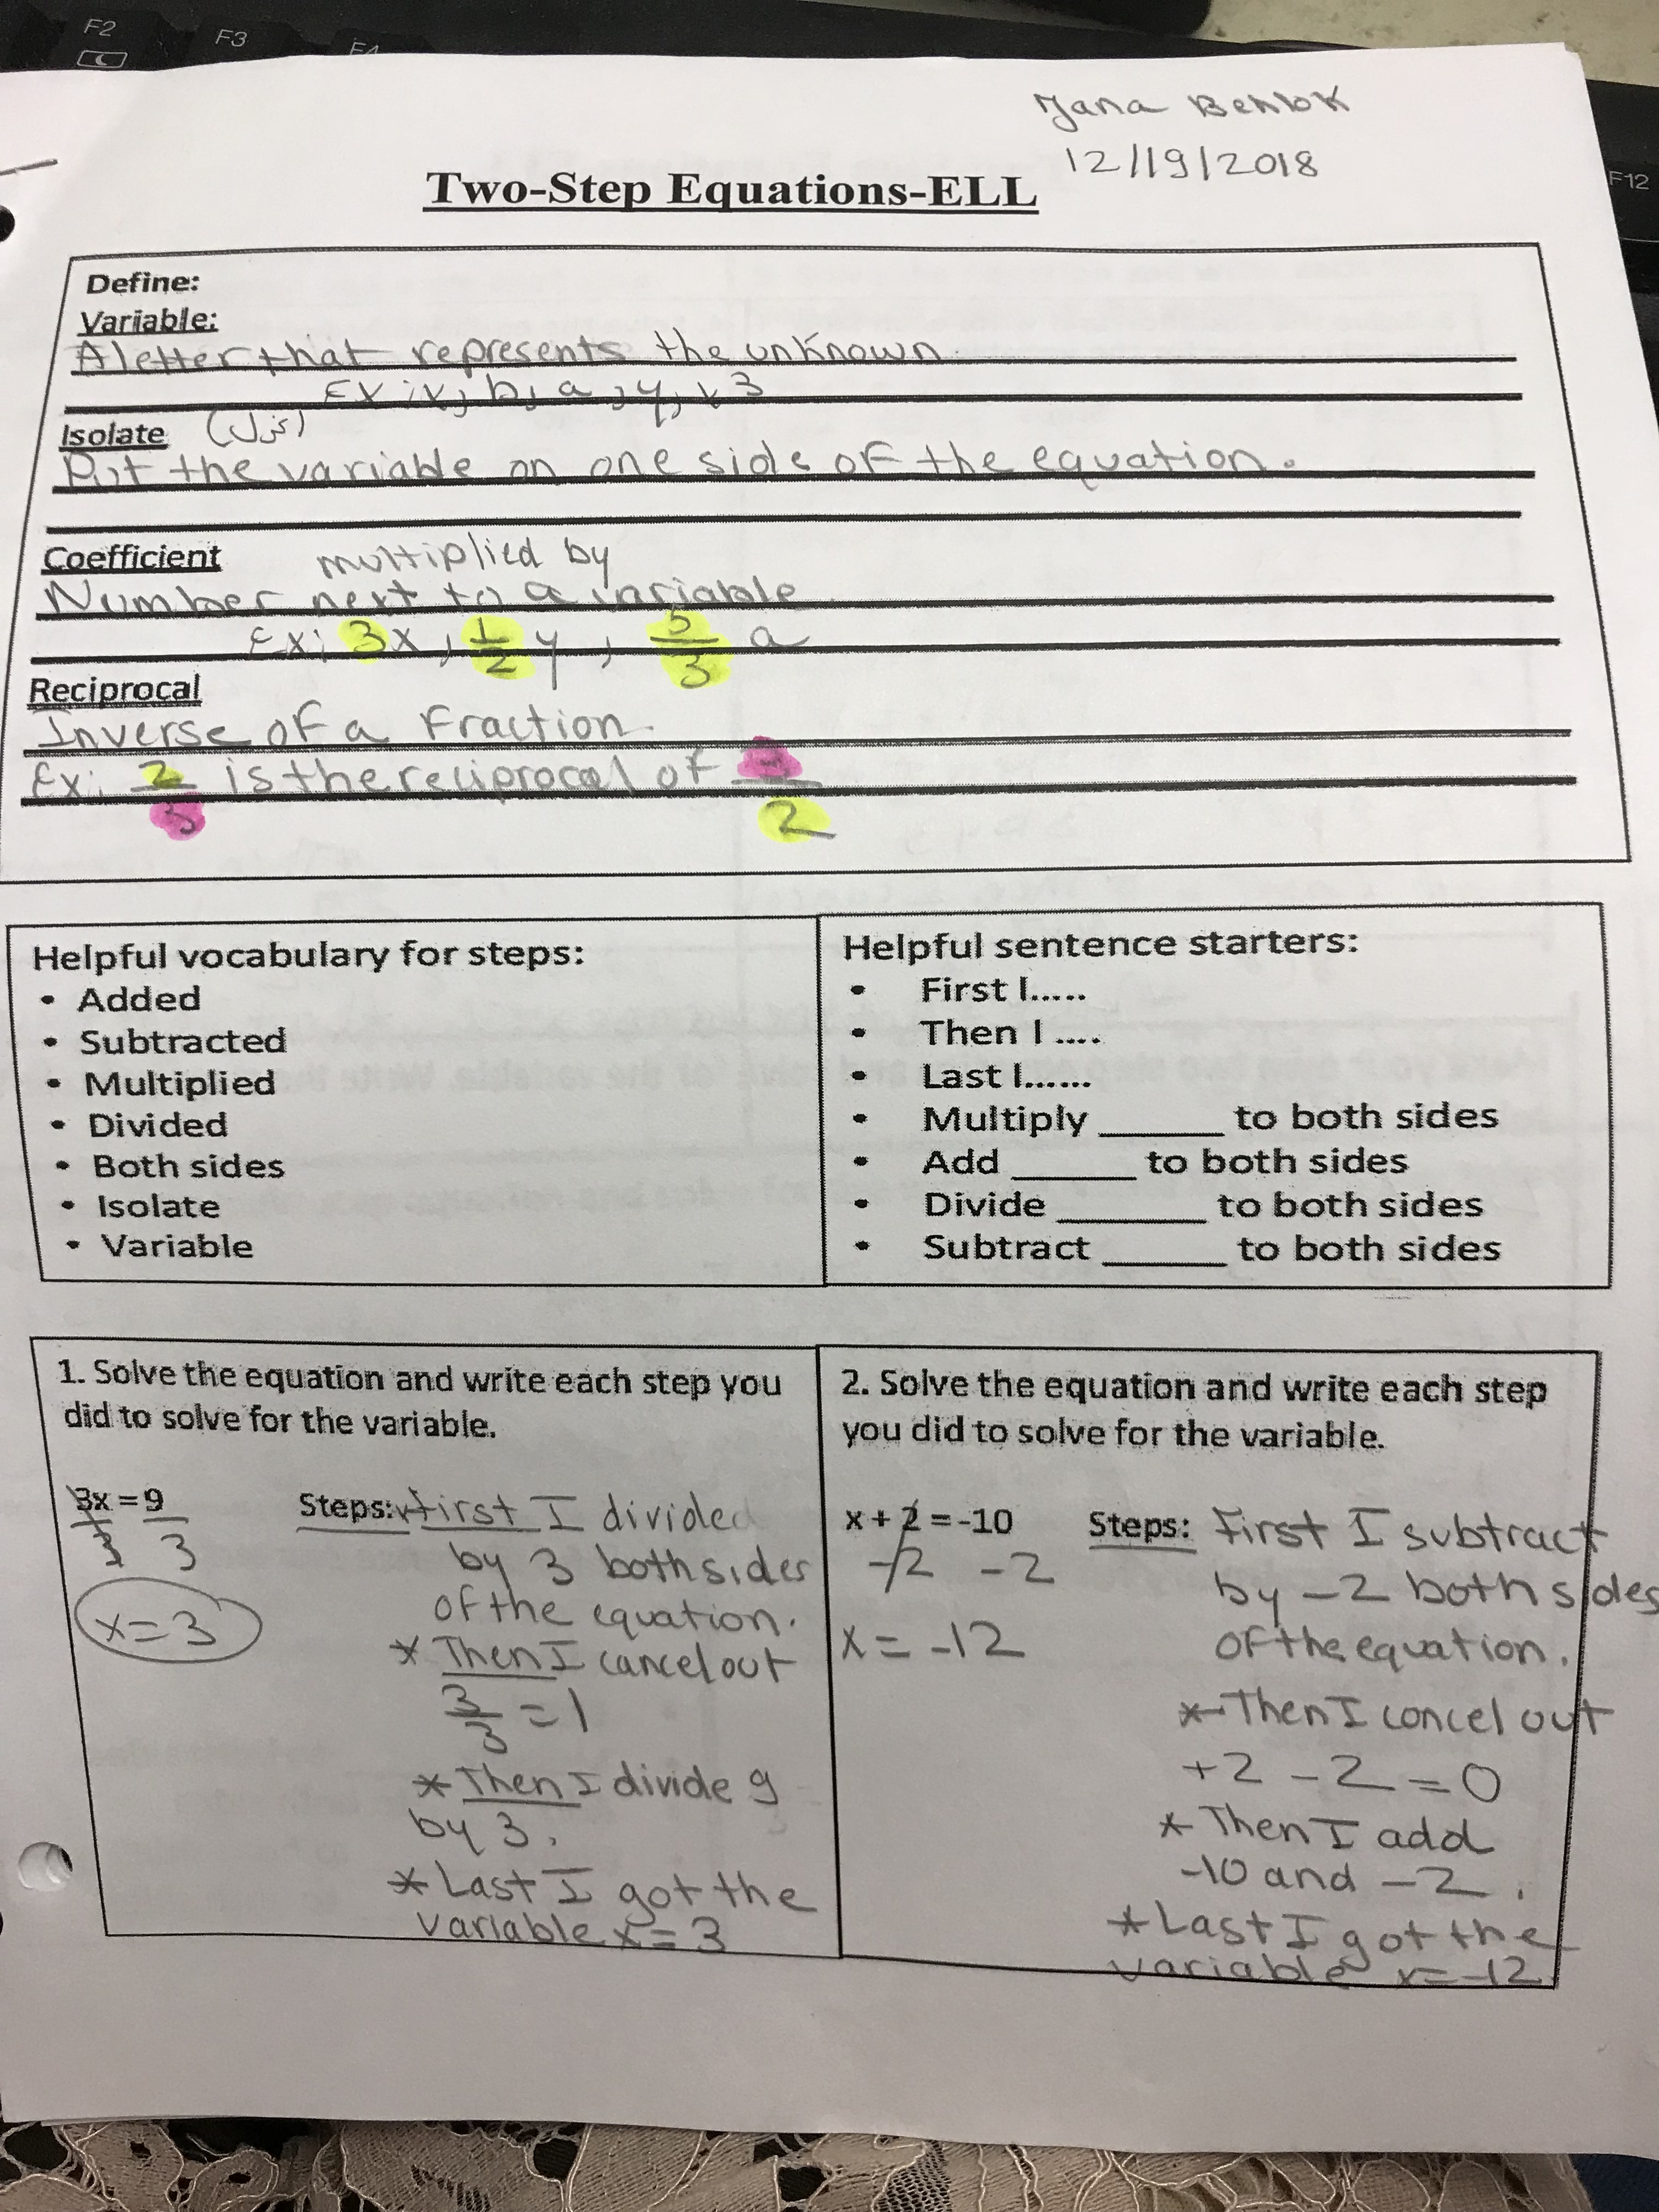 F2
F3
F4
F12
Jana
12/19/2018
Two-Step Equations-ELL
Define:
Variable:
A letter that represents the unknown.
Ex: x, b, a, y,
Isolate (عزل)
Put the variable on one side of the equation.
Coefficient multiplied by
Number next to a variable
Ex: 3x, 1/2 y, 5/3 a
Reciprocal
Inverse of a Fraction.
Ex: 2/3 is the reciprocal of 3/2
Helpful vocabulary for steps:
• Added
• Subtracted
• Multiplied
• Divided
• Both sides
• Isolate
• Variable
Helpful sentence starters:
• First I.....
• Then I ....
• Last I......
• Multiply ______ to both sides
• Add ______ to both sides
• Divide ______ to both sides
• Subtract ______ to both sides
1. Solve the equation and write each step you
did to solve for the variable.
3x = 9
3 3
x = 3
Steps: First I divided
by 3 both sides
of the equation.
* Then I cancel out
3/3 = 1
* Then I divide 9
by 3.
* Last I got the
variable x = 3
2. Solve the equation and write each step
you did to solve for the variable.
x + 2 = -10
-2 -2
x = -12
Steps: First I subtract
by -2 both sides
of the equation.
* Then I concel out
+2 -2 = 0
* Then I add
-10 and -2.
* Last I got the
variable x = -12